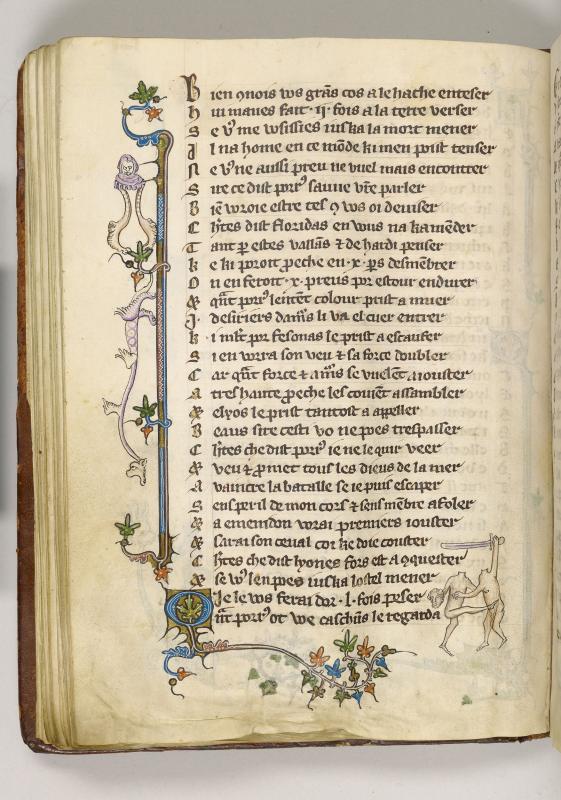 B ien 9nois vos grãs cos a le hache enteser
h ui maues fait ·ij· fois a la terre verser
S e vꝰ me wissies iuska la mort mener
I l na home en ce mõde ki men puist tenser
N e vꝰ ne aussi preu ne vuel mais encontrer
S ire ce dist porrꝰ sauue vr̃e parler
B iẽ wroie estre tes 9 vos oi deuiser
C h̃res dist floridas en vous na kamẽder
T ant ꝑ estes vallãs ⁊ de hardi penser
k e ki poroit peche en ·x· ꝑs desmẽbrer
O n en feroit ·x· preus por estour endurer
⁊ q̃nt porrꝰ lentẽt colour prist a muer
I · desiriers dam̃s li va el cuer entrer
k i mlt̃ por fesonas le prist a escaufer
S i en vorra son veu ⁊ sa force doubler
C ar q̃nt force ⁊ am̃s se vuelẽt aiouster
A tres haute proeche les couiẽt assambler
⁊ elyos le prist tantost a appeller
B eaus sire cesti vo ne poes trespasser
C h̃res che dist porrꝰ ie ne le quir veer
⁊ veu ⁊ promet tous les dieus de la mer
A vaincre la bataile se ie puis escaper
S ens peril de mon cors ⁊ sens mẽbre afoler
⁊ a emenidon vorai premiers iouster
⁊ sarai son ceual coi ke doie couster
C h̃res che dist lyones fors est a 9quester
⁊ se vꝰ len poes iuska lostel mener
Ie le vos ferai dor ·l· fois peser
Q ñt porrꝰ or voe caschũs le regarda